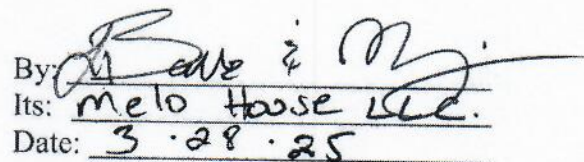 By:
Its: Melo House LLC.
Date: 3.28.25